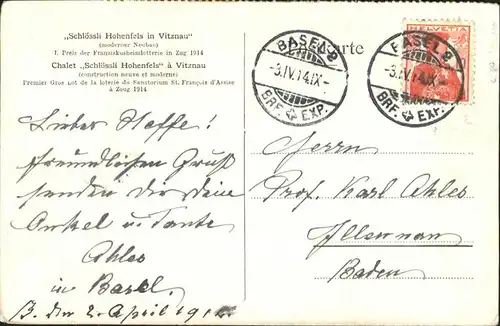 „Schlössli Hohenfels in Vitznau“
(moderner Neubau)
I. Preis der Franziskusheimlotterie in Zug 1914
Chalet „Schlössli Hohenfels“ à Vitznau
(construction neuve et moderne)
Premier Gros Lot de la loterie du Sanatorium St. François d'Assise
à Zoug 1914
Postkarte
BASEL 2
-3.IV.14.IX-
BRF. EXP.
BASEL 2
-3.IV.14.IX-
BRF. EXP.
HELVETIA
Lieber Neffe!
Freundlichen Gruß
senden dir deine
Onkel u. Tante
Ahles
in Basel.
B. den 2. April 191
Herrn
Prof. Karl Ahles
Illenau
Baden